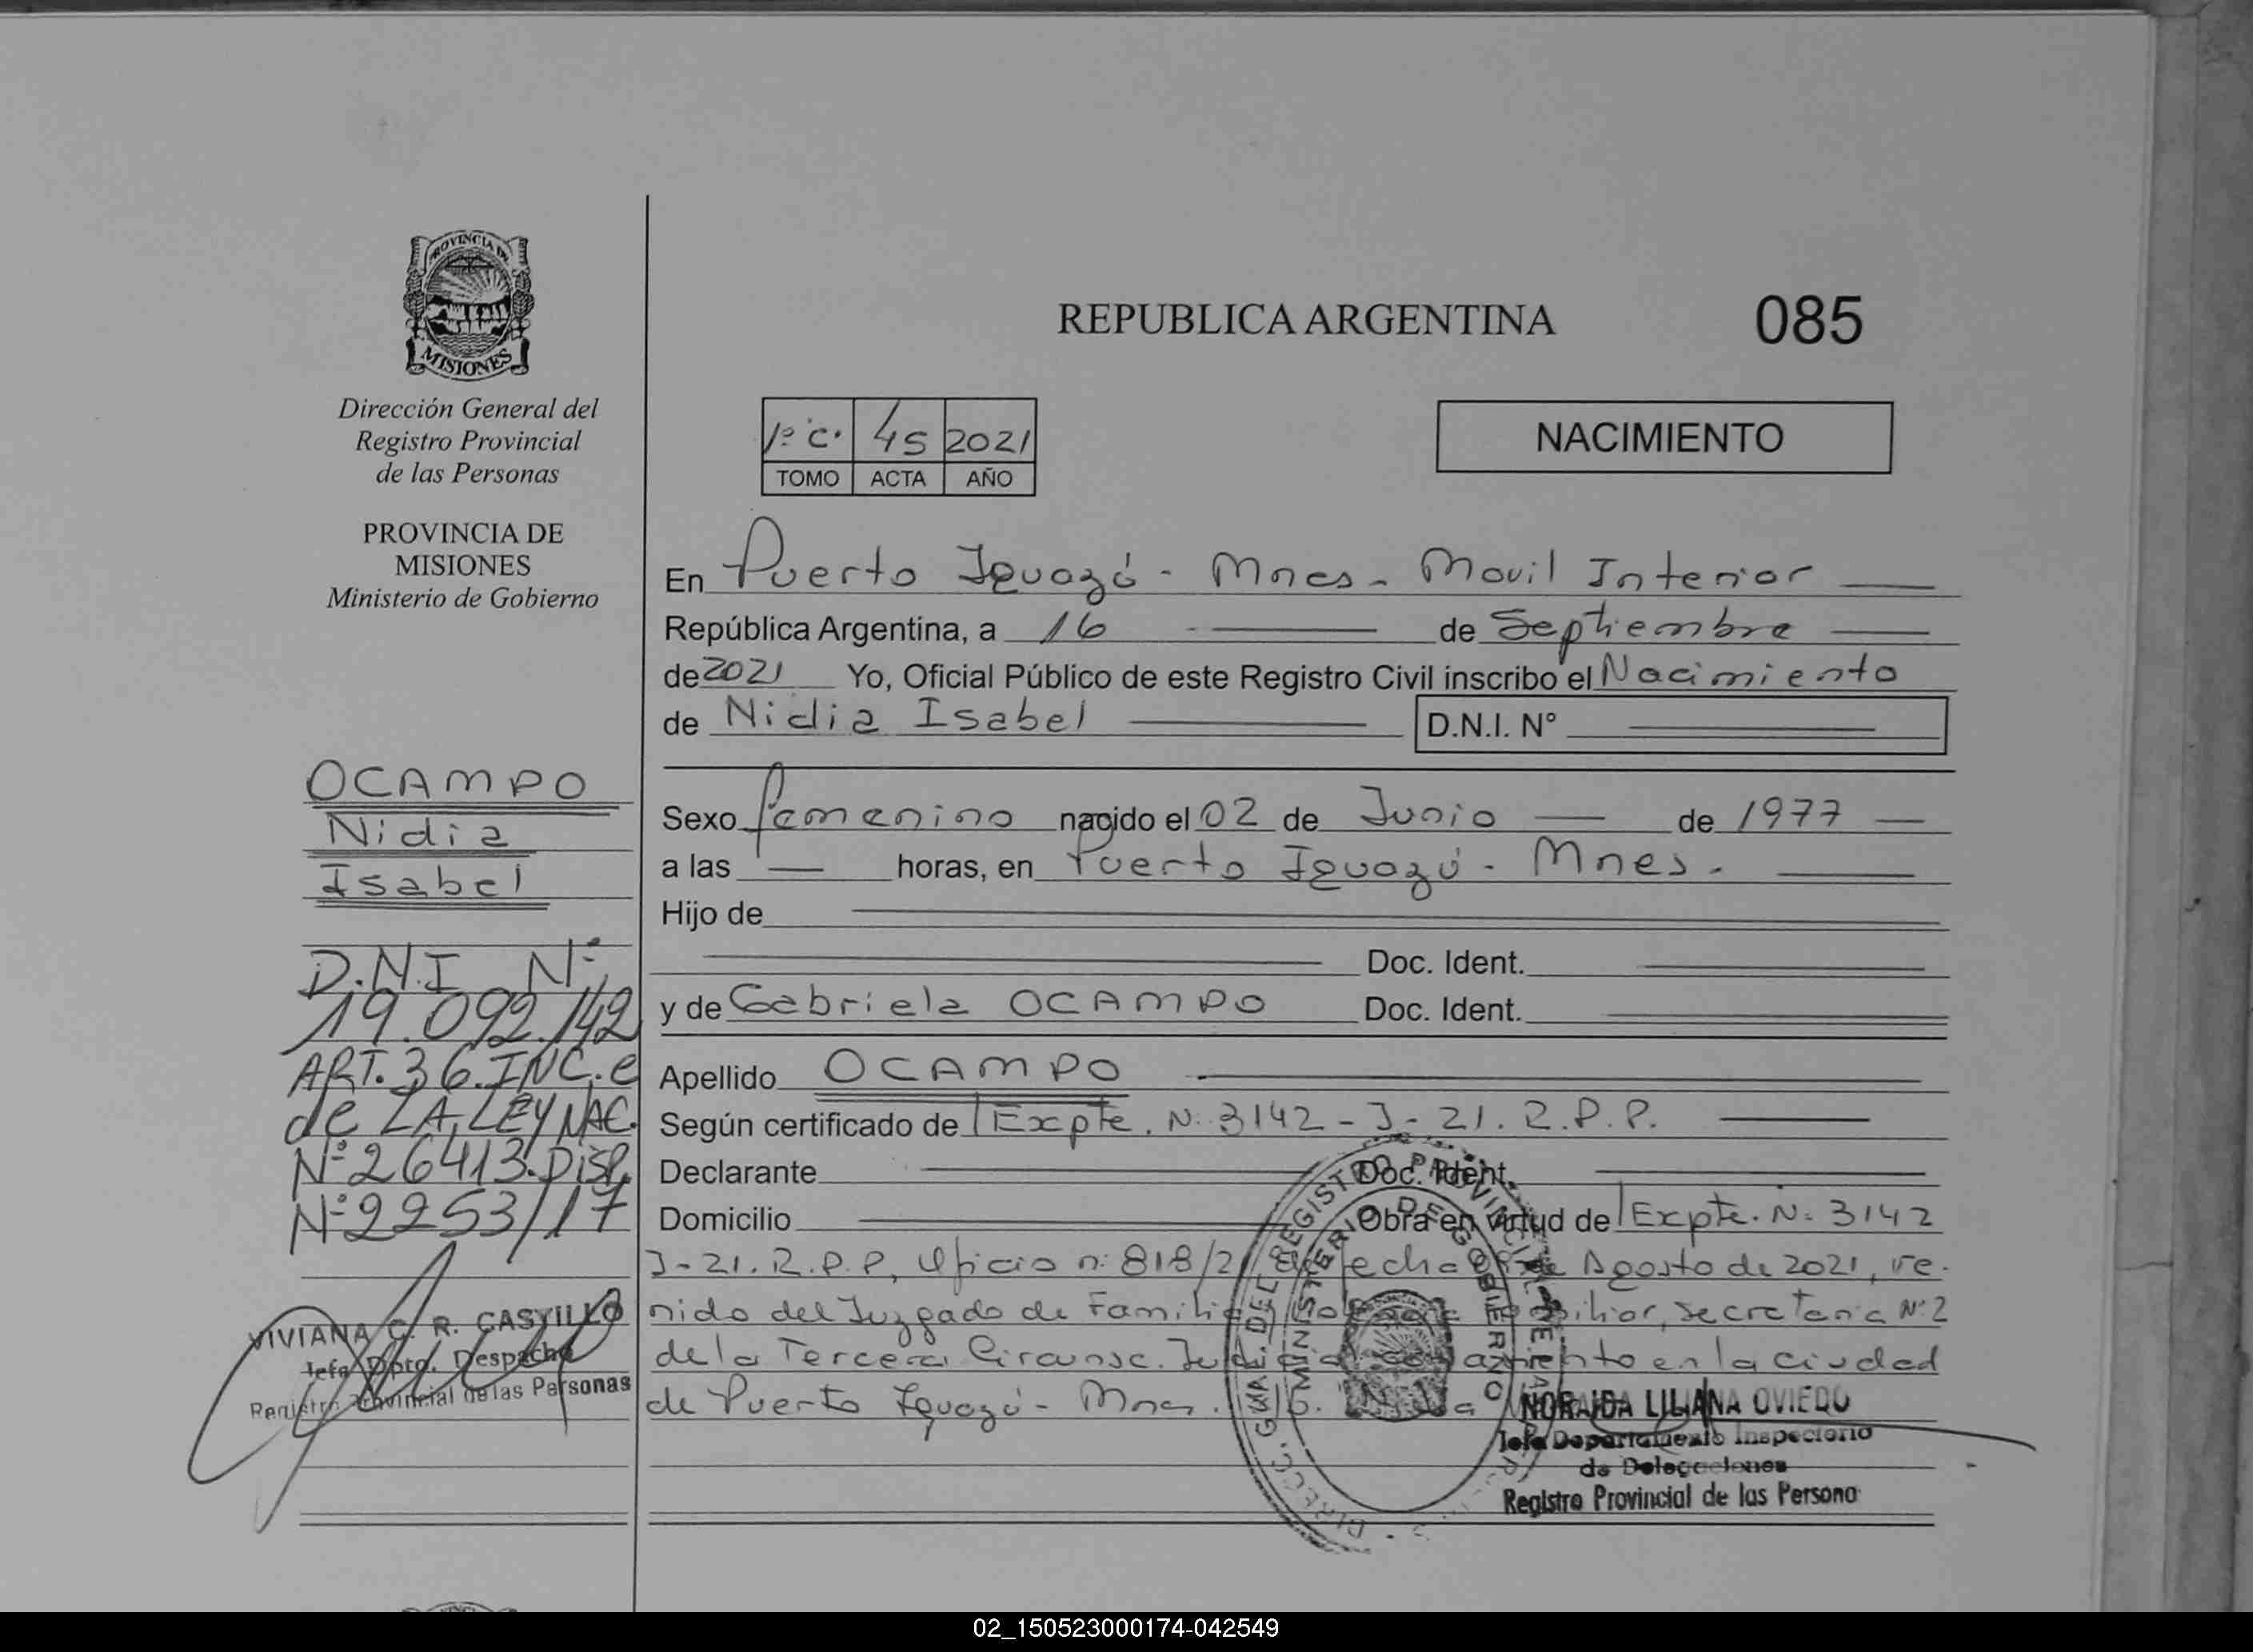 PROVINCIA DE
MISIONES
Dirección General del
Registro Provincial
de las Personas
PROVINCIA DE
MISIONES
Ministerio de Gobierno
OCAMPO
Nidia
Isabel
D.N.I Nº
19.092.142
ART.36.INC.e
de LA LEY NAC.
Nº26413.DISP.
Nº2253/17
VIVIANA C. R. CASTILLO
Jefa Dpto. Despacho
Registro Provincial de las Personas
REPUBLICA ARGENTINA 085
1º C. 45 2021
TOMO ACTA AÑO
NACIMIENTO
En Puerto Iguazú - Mnes - Movil Interior
República Argentina, a 16 de Septiembre
de 2021 Yo, Oficial Público de este Registro Civil inscribo el Nacimiento
de Nidia Isabel D.N.I. Nº
Sexo femenino nacido el 02 de Junio de 1977
a las horas, en Puerto Iguazú - Mnes.
Hijo de
Doc. Ident.
y de Gabriela OCAMPO Doc. Ident.
Apellido OCAMPO
Según certificado de Expte. N: 3142 - J - 21. R.P.P.
Declarante Doc. Ident.
Domicilio Obra en virtud de Expte. N: 3142
J-21. R.P.P, Oficio n: 818/2 fecha de Agosto de 2021, ve-
nido del Juzgado de Familia Secretaria Nº2
de la Tercera Circunsc. Judicial en la ciudad
de Puerto Iguazú - Mnes.
DIRECC. GRAL. DEL REGISTRO PROVINCIAL DE LAS
MINISTERIO DE GOBIERNO
NORAIDA LILIANA OVIEDO
Jefa Departamento Inspectorio
de Delegaciones
Registro Provincial de las Persona
02_150523000174-042549